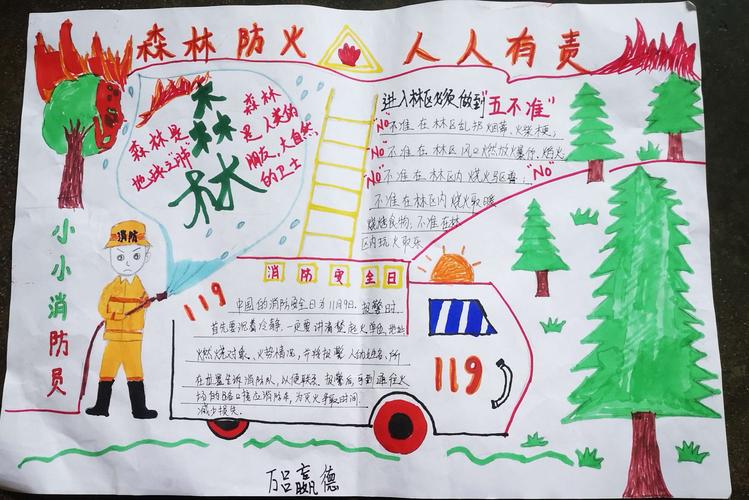 森林防火 人人有责
森林是
地球之肺
森
林
森林
是人类的
朋友，大自然
的卫士
进入林区必须做到"五不准"
"NO"不准在林区乱扔烟蒂、火柴梗，
"NO"不准在林区风口燃放爆竹、焰火
"NO"不准在林区内烧火驱兽；"NO"
不准在林区内烧火取暖
烧烤食物，不准在林
区内玩火取乐
小小消防员
消防
119
消防安全日
中国的消防安全日为11月9日．报警时
首先要沉着冷静，一定要讲清楚起火单位、地址
燃烧对象、火势情况，并将报警人的姓名、所
在位置告诉消防队，以便联系．报警后，可到通往火
场的路口接应消防车，为灭火争取时间
减少损失．
119